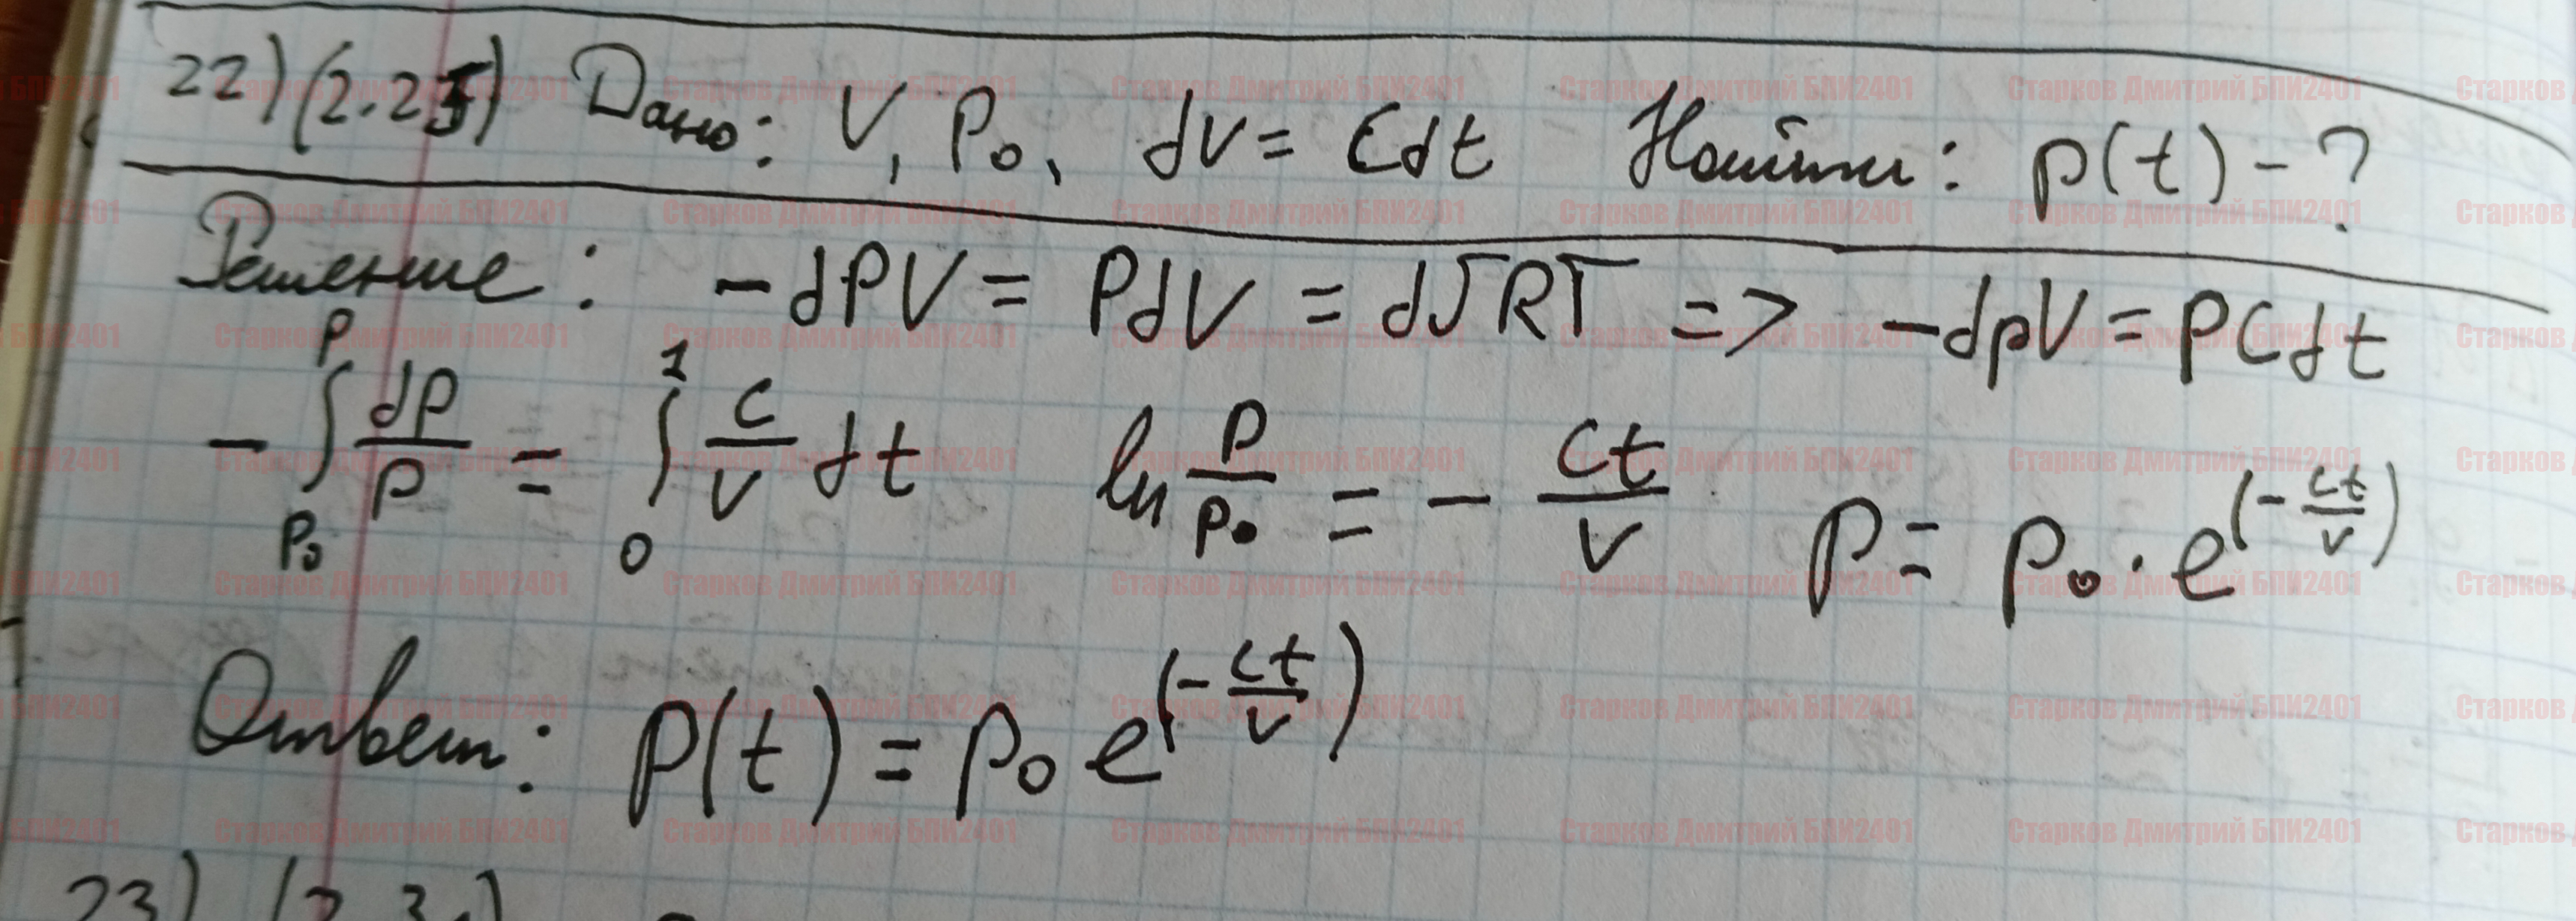 22) (2.25) Дано: V, P₀, dV = Cdt Найти: p(t) - ?
Решение: -dPV = PdV = dνRT => -dpV = PCdt
-∫_{P₀}^{P} dp/p = ∫_{0}^{1} C/V dt ln P/P₀ = - Ct/V p = p₀ · e^(-Ct/V)
Ответ: p(t) = p₀ e^(-Ct/V)
23)
Старков Дмитрий БПИ2401